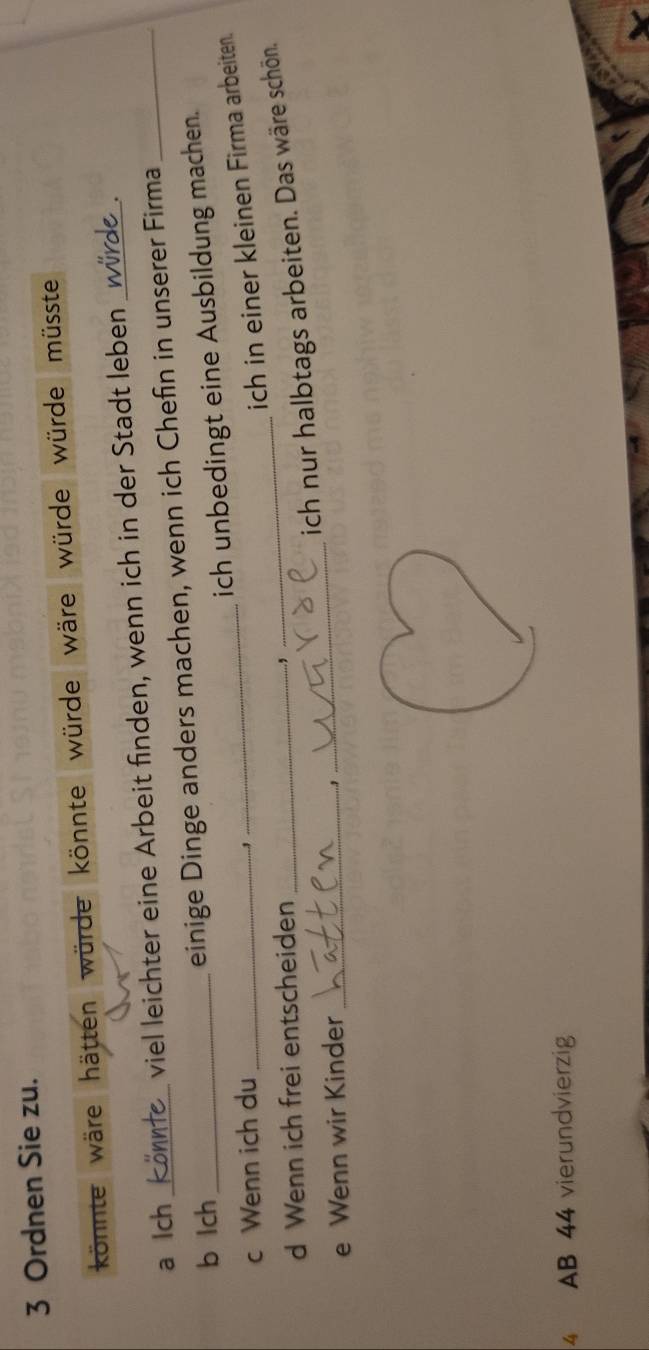 3 Ordnen Sie zu.
könnte wäre hätten würde könnte würde wäre würde würde müsste
a Ich könnte viel leichter eine Arbeit finden, wenn ich in der Stadt leben würde.
b Ich ______ einige Dinge anders machen, wenn ich Chefin in unserer Firma ______
c Wenn ich du ______, ______ ich unbedingt eine Ausbildung machen.
d Wenn ich frei entscheiden ______, ______ ich in einer kleinen Firma arbeiten.
e Wenn wir Kinder hätten, würde ich nur halbtags arbeiten. Das wäre schön.
4 AB 44 vierundvierzig